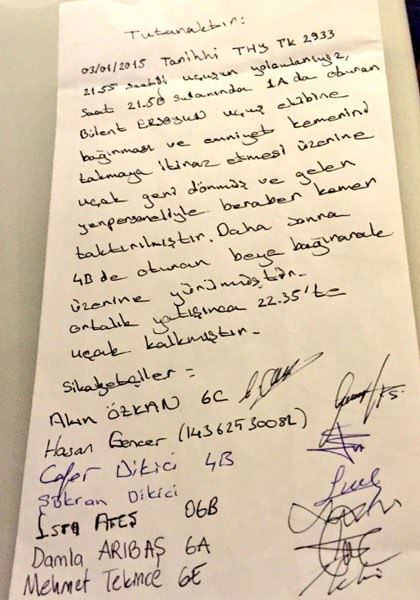 Tutanaktır:
03/01/2015 Tarihli THY TK 2933
21.55 saatli uçuşun yolcularıyız,
Saat 21.50 sularında 1A da oturan
Bülent ERSOYUN uçuş ekibine
bağırması ve emniyet kemerini
takmaya itiraz etmesi üzerine
uçak geri dönmüş ve gelen
yerpersoneliyle beraber kemer
taktırılmıştır. Daha sonra
4B de oturan beye bağırarak
üzerine yürümüştür.
ortalık yatışınca 22.35'te
uçak kalkmıştır.
Şikayetçiler =
Akın ÖZKAN 6C
Hasan Gencer (14362530082)
Cafer Dikici 4B
Şükran Dikici
Esra ATEŞ 06B
Damla ARIBAŞ 6A
Mehmet Tekince 6E